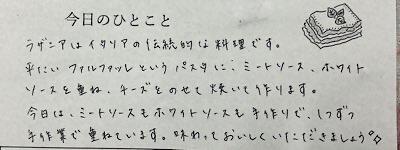 今日のひとこと
ラザニアはイタリアの伝統的な料理です。
平たいファルファッレというパスタに、ミートソース、ホワイト
ソースを重ね、チーズをのせて焼いて作ります。
今日は、ミートソースもホワイトソースも手作りで、1つずつ
手作業で重ねています。味わっておいしくいただきましょう